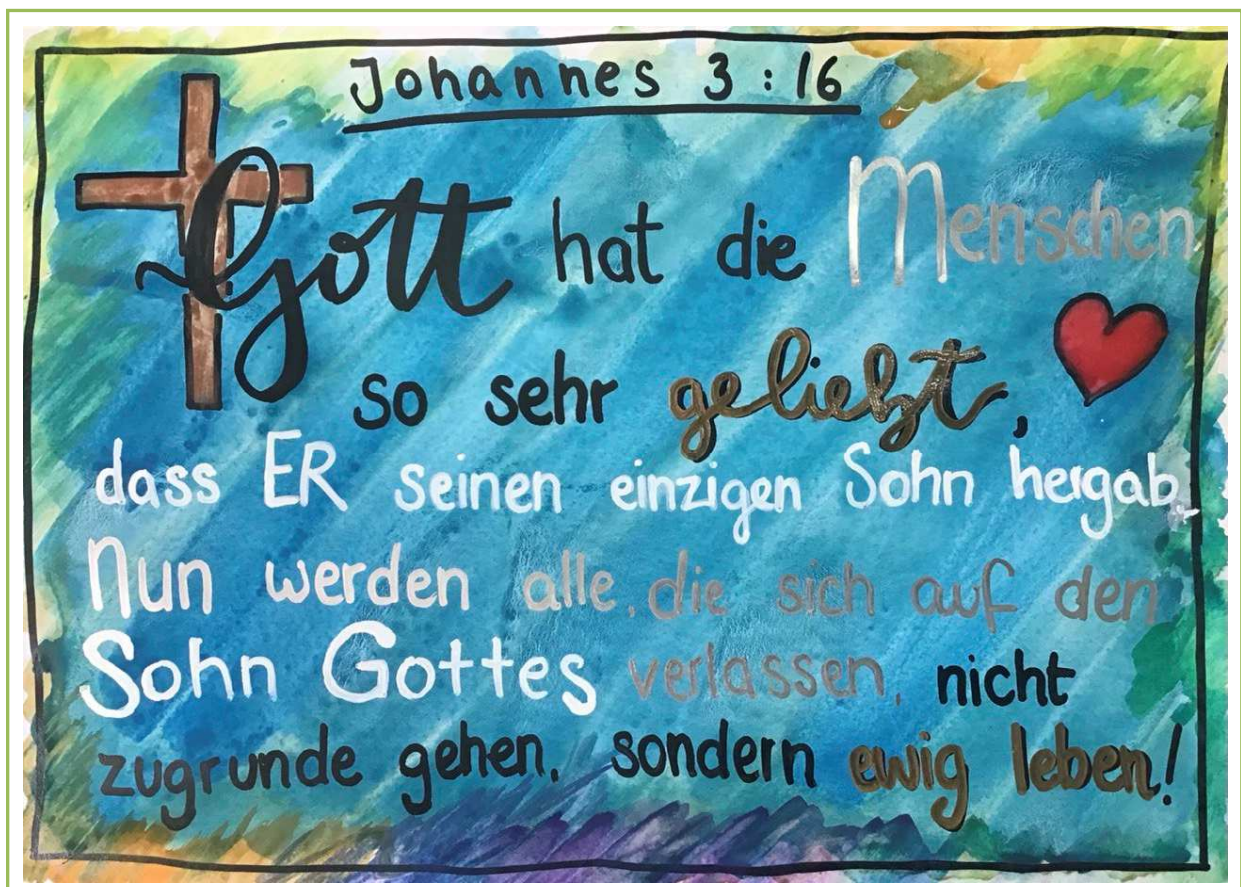 Johannes 3 : 16
Gott hat die Menschen
so sehr geliebt,
dass ER seinen einzigen Sohn hergab.
Nun werden alle, die sich auf den
Sohn Gottes verlassen, nicht
zugrunde gehen, sondern ewig leben!